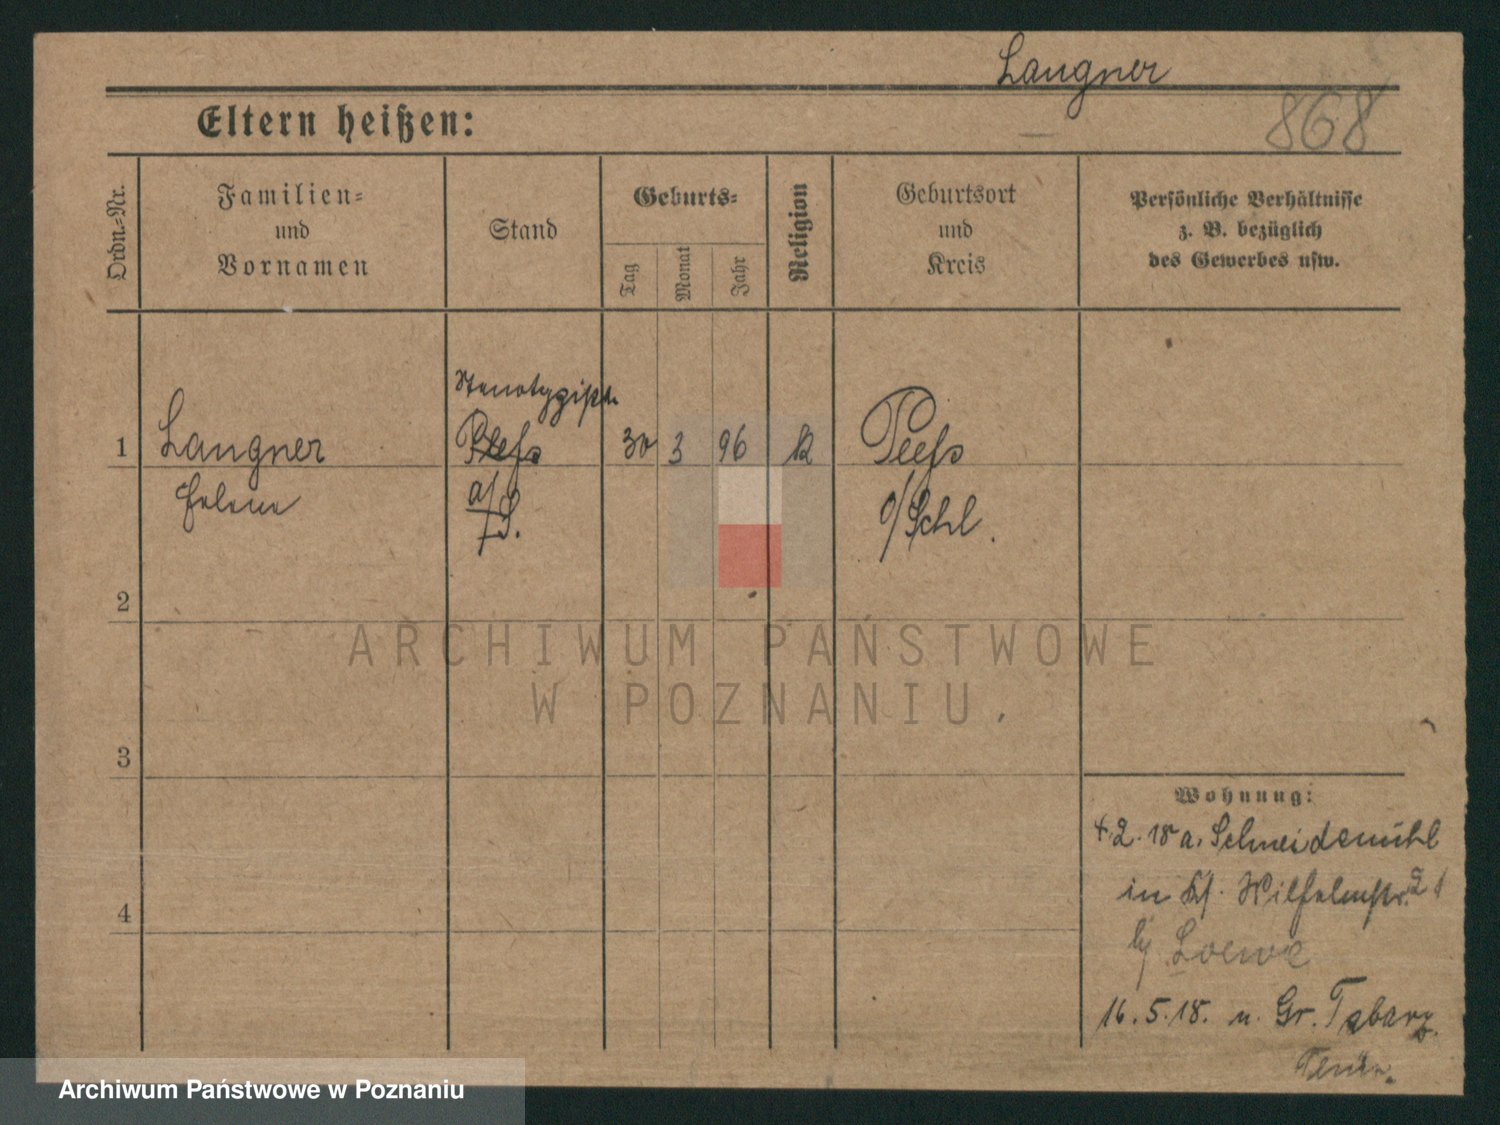 Langner
868
Eltern heißen:
Ordn.-Nr.
Familien-
und
Vornamen
Stand
Geburts-
Tag
Monat
Jahr
Religion
Geburtsort
und
Kreis
Persönliche Verhältnisse
z. B. bezüglich
des Gewerbes usw.
Stenotypist.
1 Langner 30 3 96 Pless
Helene
a/S.
o/Schl.
2
3
4
ARCHIWUM PAŃSTWOWE
W POZNANIU
Wohnung:
4.2.18 a. Schneidemühl
in Wilhelmstr. 21
by Loewe
16.5.18. n. Gr.
Archiwum Państwowe w Poznaniu